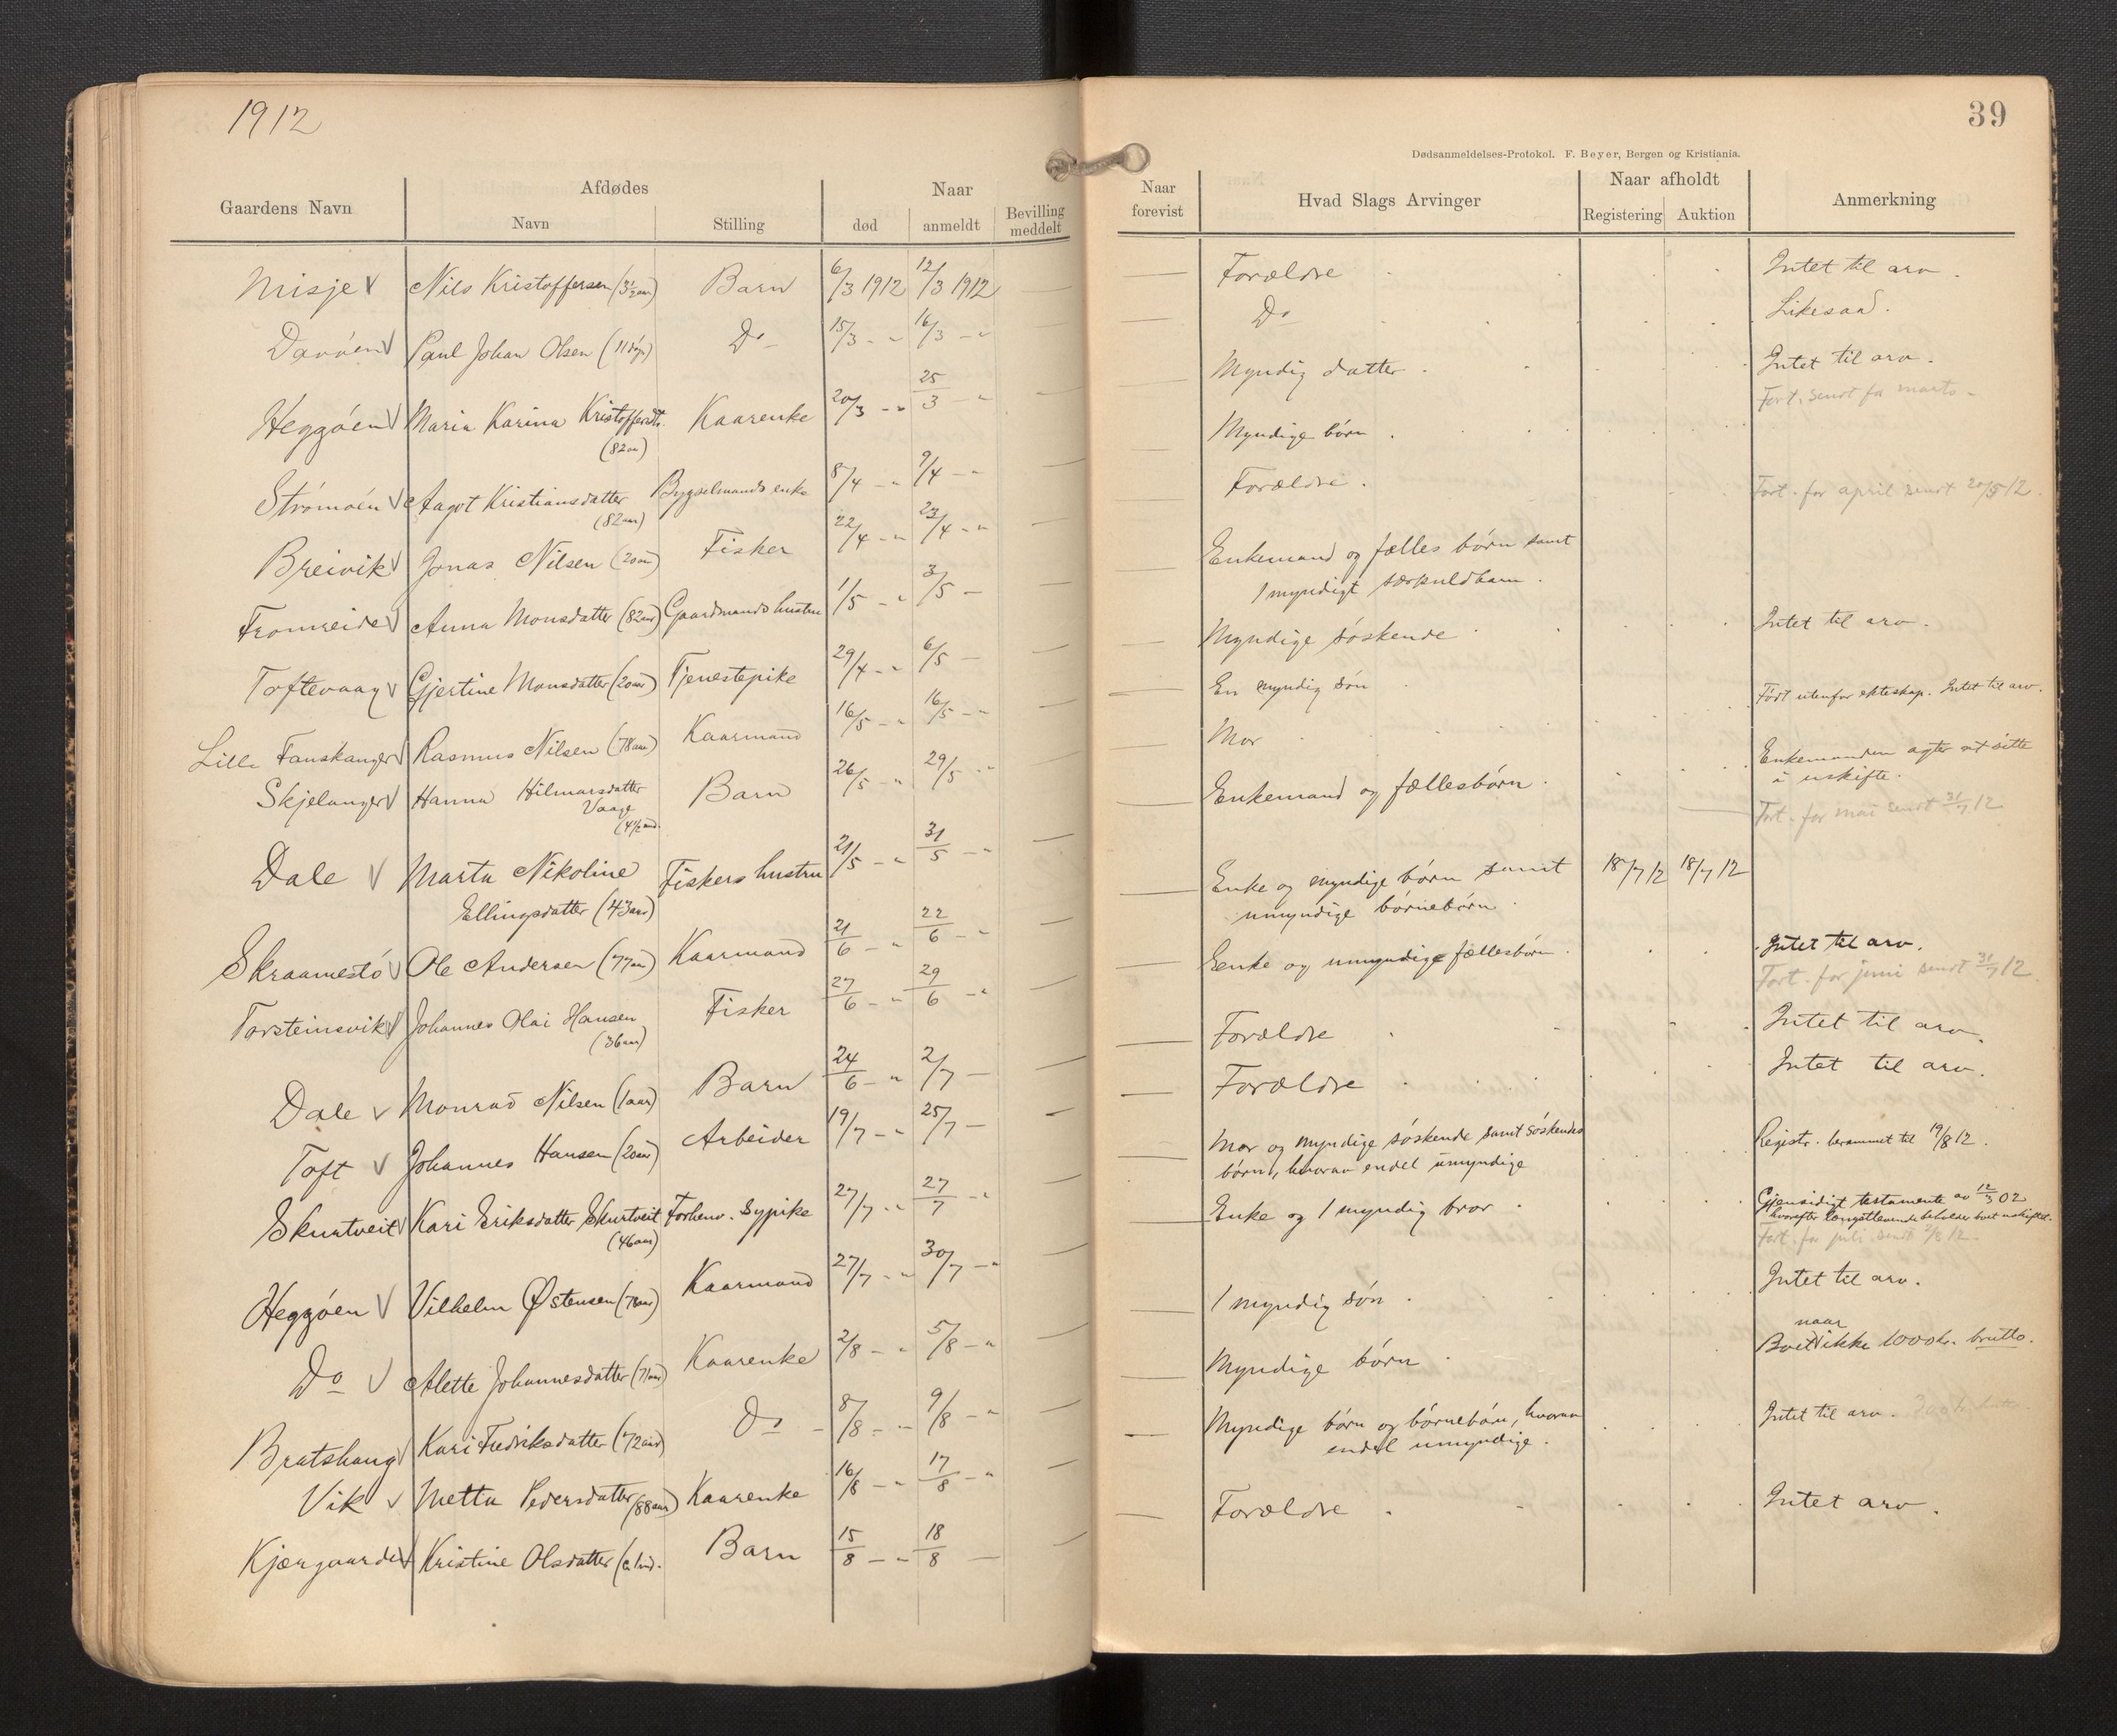 1912
Gaardens Navn
Afdødes
Navn
Stilling
Naar
død
anmeldt
Bevilling
meddelt
Misje Nils Kristoffersen (3½ aar) Barn 6/3 1912 12/3 1912
Davøen Paul Johan Olsen (11 døgn) Do 15/3 - " 16/3 - "
Heggøen Maria Karina Kristoffersdtr. Kaarenke 20/3 - " 25/3 - "
(82 aar)
Strømøen Aagot Kristiansdatter Bygselmands enke 8/4 - " 9/4 - "
(82 aar)
Breivik Jonas Nilsen (20 aar) Fisker 22/4 - " 23/4 - "
Fromreide Anna Monsdatter (82 aar) Gaardmands hustru 1/5 - " 3/5 -
Toftevaag Gjertine Monsdatter (20 aar) Tjenestepike 29/4 - " 6/5 -
Lille Fauskanger Rasmus Nilsen (78 aar) Kaarmand 16/5 - " 16/5 - "
Skjelanger Hanna Hilmarsdatter Barn 26/5 - " 29/5 - "
Vaage
(4½ mnd.
Dale Marta Nikoline Fiskers hustru 21/5 - " 31/5 - "
Ellingsdatter (43 aar)
Skraamestø Ole Andersen (77 aar) Kaarmand 21/6 - " 22/6 - "
Torsteinsvik Johannes Olai Hansen Fisker 27/6 - " 29/6 - "
(36 aar)
Dale Monrad Nilsen (1 aar) Barn 24/6 - " 2/7 -
Toft Johannes Hansen (20 aar) Arbeider 19/7 - " 25/7 -
Skurtveit Kari Eriksdatter Skurtveit Forhenv. Sypike 27/7 - " 27/7 - "
(46 aar)
Heggøen Vilhelm Østensen (78 aar) Kaarmand 27/7 - " 30/7 - "
Do Alette Johannesdatter (71 aar) Kaarenke 2/8 - " 5/8 - "
Bratshaug Kari Fredriksdatter (72 aar) Do 8/8 - " 9/8 - "
Vik Metta Pedersdatter (88 aar) Kaarenke 16/8 - " 17/8 - "
Kjærgaarden Kristine Olsdatter Barn 15/8 - " 18/8 -
39
Dødsanmeldelses-Protokol. F. Beyer, Bergen og Kristiania.
Naar
forevist
Hvad Slags Arvinger
Naar afholdt
Registering
Auktion
Anmerkning
Forældre Intet til arv.
Do Likesaa.
Myndig datter. Intet til arv.
Fort. sendt for marts -
Myndige børn.
Forældre. Fort. for april sendt 20/5 12.
Enkemand og fælles børn samt
1 myndigt særkuldbarn.
Myndige søskende Intet til arv.
En myndig søn Født utenfor ekteskap. Intet til arv.
Mor
Enkemand og fællesbørn. Enkemanden agter at sitte
i uskifte.
Fort. for mai sendt 31/7 12
Enke og myndige børn samt 18/7 12 18/7 12
umyndige børnebørn.
Enke og umyndige fællesbørn. Intet til arv.
Fort. for juni sendt 31/7 12
Forældre Intet til arv.
Forældre Intet til arv.
Mor og myndige søskende samt søskendes Registr. berammet til 19/8 12.
børn, hvorav endel umyndige
Enke og 1 myndig bror Gjensidigt testamente av 12/3 02
hvorefter længstlevende beholder boet uskiftet.
Fort. for juli sendt 2/8 12.
1 myndig søn. Intet til arv.
Myndige børn naar
Boet ikke 1000 kr. brutto.
Myndige børn og børnebørn, hvorav Intet til arv.
endel umyndige.
Forældre. Intet arv.